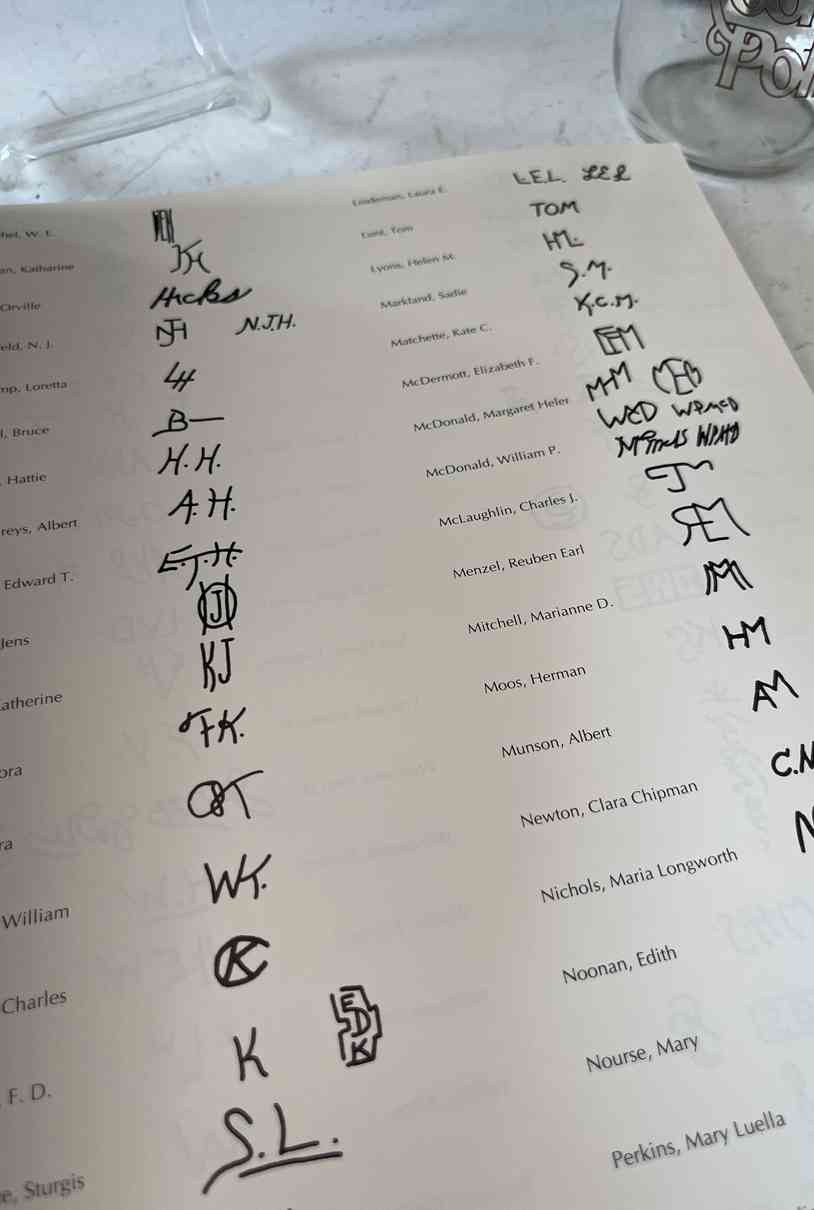 hel, W. E.
an, Katharine
KH
Orville
Hicks
eld, N. J.
NJH N.J.H.
mp, Loretta
LH
l, Bruce
B—
Hattie
H.H.
reys, Albert
A.H.
Edward T.
E.T.H.
Jens
J
atherine
KJ
ora
F.K.
ra
William
W.K.
Charles
CK
F. D.
K EDK
e, Sturgis
S.L.
Lindeman, Laura E.
L.E.L. LEL
Lunt, Tom
TOM
Lyons, Helen M.
HL
Markland, Sadie
S.M.
Matchette, Kate C.
K.C.M.
McDermott, Elizabeth F.
EM
McDonald, Margaret Helen
MHM
McDonald, William P.
WPMCD
McLaughlin, Charles J.
Menzel, Reuben Earl
REM
Mitchell, Marianne D.
Moos, Herman
HM
Munson, Albert
AM
Newton, Clara Chipman
C.N
Nichols, Maria Longworth
N
Noonan, Edith
Nourse, Mary
Perkins, Mary Luella